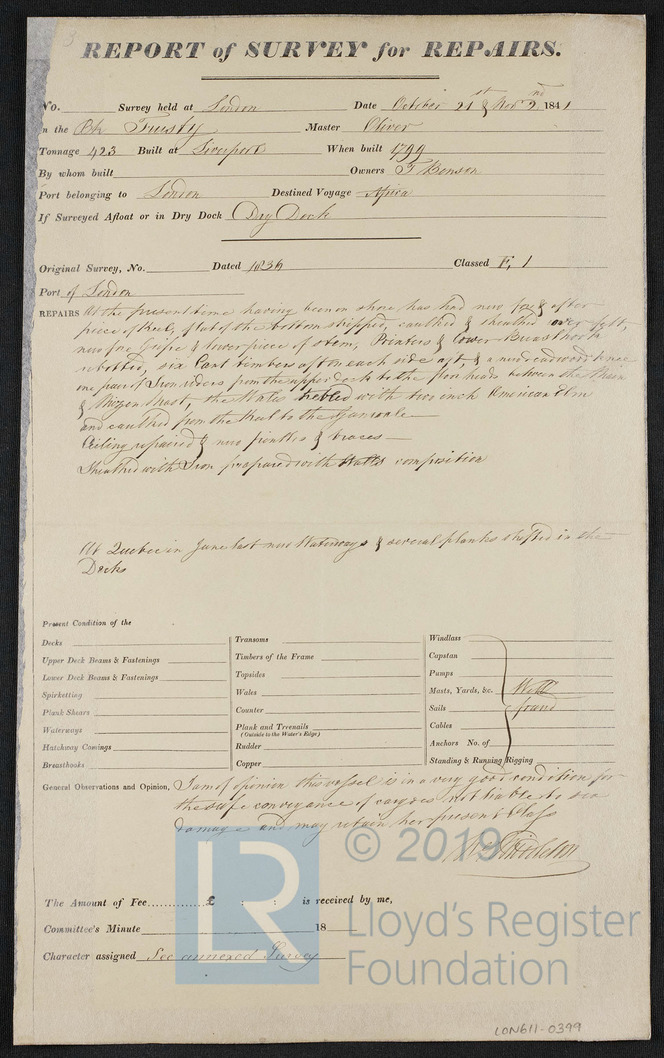 REPORT of SURVEY for REPAIRS.
No. Survey held at London Date October 21st & Nov 2nd 1841
n the Bk Trusty Master Oliver
Tonnage 423 Built at Liverpool When built 1799
By whom built Owners T Benson
Port belonging to London Destined Voyage Africa
If Surveyed Afloat or in Dry Dock Dry Dock
Original Survey, No. Dated 1836 Classed E, 1
Port of London
REPAIRS At the present time having been on shore has had new fore & after
piece of Keel, flat of the bottom stripped, caulked & sheathed over felt,
new fore Gripe & lower piece of stem, Pointers & lower Breasthook
rebolted, six Cant timbers aft on each side aft, & a new deadwood
one pair of Iron riders from the upper deck to the floor heads between the Main
& Mizen Mast, the Wales trebled with two inch American Elm
and caulked from the Keel to the Gunwale
Ceiling repaired & new &
Sheathed with Iron prepared with Watts composition
At Quebec in June last new Waterways & several planks shifted in the
Decks
Present Condition of the
Decks
Upper Deck Beams & Fastenings
Lower Deck Beams & Fastenings
Spirketting
Plank Shears
Waterways
Hatchway Comings
Breasthooks
Transoms
Timbers of the Frame
Topsides
Wales
Counter
Plank and Treenails
(Outside to the Water's Edge)
Rudder
Copper
Windlass
Capstan
Pumps
Masts, Yards, &c.
Sails
Cables
Anchors No. of
Standing & Running Rigging
Well
found
General Observations and Opinion, I am of opinion this vessel is in a very good condition for
the safe conveyance of cargoes not liable to sea
damage and may retain her present Class
The Amount of Fee......£ : : is received by me,
Committee's Minute 18
Character assigned See annexed Survey
© 2019
LR
Lloyd's Register
Foundation
LON611-0399